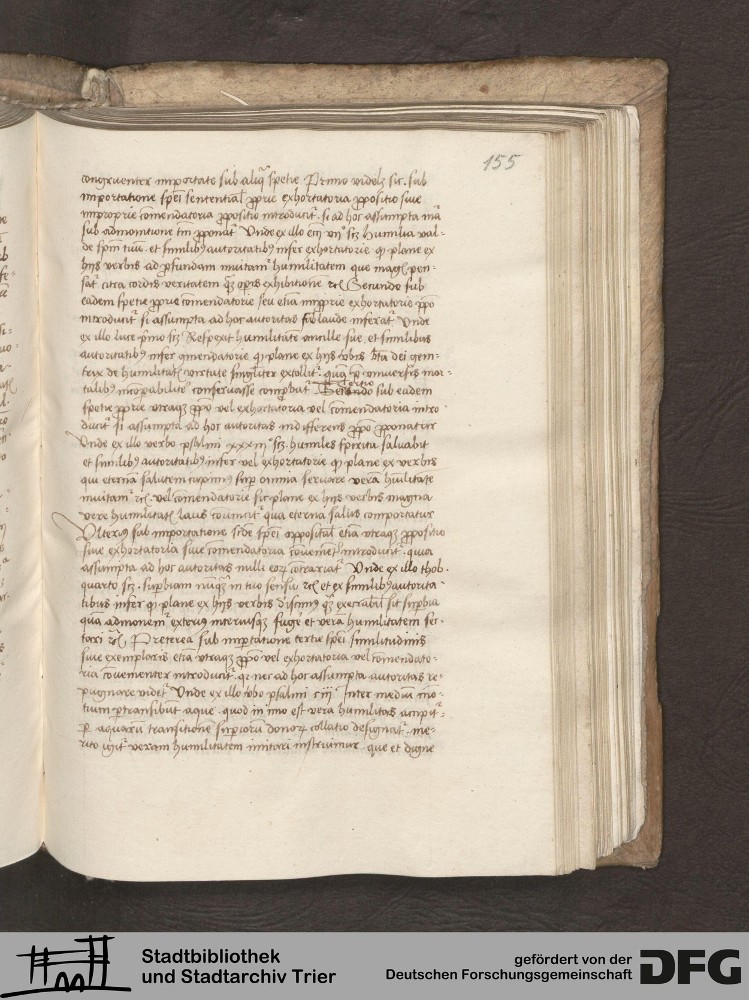 155
congruenter importate sub aliq̄ spetie Primo videlꝫ sic. sub
importatione spēi sententiaľ ꝓprie exhortatoria ꝓpositio siue
improprie cōmendatoria ꝓpositio introducit². si ad hoc assumpta mā
sub admonitione tm̄ ꝓponat² Vnde ex illo scꝫ humilia val-
de spm̄ tuū. et similibꝰ autoritatibꝰ infer exhortatorie ꝙ plane ex
hijs verbis ad ꝓfundam inuitam² humilitatem que magꝭ pen-
sat² citra cordis veritatem ꝙꝫ oꝑis exhibitione ⁊cꝭ Secundo sub
eadem spetie ꝓprie cōmendatorie seu etiā imꝓprie exhortatorie ꝓpō
introducit² si assumpta ad hoc autoritas laude inferat² Vnde
ex illo luce pͥmo scꝫ Respexit humilitatē ancille sue. et similibus
autoritatibꝰ infer ꝙmendatorie ꝙ plane ex hijs ꝟbis bt̄a dei geni-
trix de humilitatꝭ virtute singĺiter extollit². quā vniuersis mor-
talibꝰ incōpabilitĕ conseruasse comꝓbat² Tertio sub eadem
spetie ꝓprie vtraqꝫ ꝓpō vel exhortatoria vel cōmendatoria intro
ducit² si assumpta ad hoc autoritas indifferens ꝓpō ꝓponatur
Vnde ex illo verbo psalmi xxxiij scꝫ humiles spiritu saluabit
et similibꝰ autoritatibꝰ infer vel exhortatorie ꝙ plane ex verbis
qui eternā salutem cupimꝰ suꝑ omnia seruare verā hūilitatē
inuitam² ⁊cꝭ. vel cōmendatorie sic plane ex hijs verbis magna
vere humilitatꝭ laus cōuincit² qua eterna salus comportatur
Vlteriꝰ sub importatione scd̄e spēi oppositaľ etiā vtraqꝫ ꝓpositio
siue exhortatoria siue cōmendatoria cōuenienť introducit². quia
assumpta ad hoc autoritas nulli eoꝝ cōtrariat² Vnde ex illo thob.
quarto scꝫ. suꝑbiam nūꝙ̄ in tuo sensu ⁊cꝭ et ex similibꝰ autorita-
tibus infer ꝙ plane ex hijs verbis discimꝰ ꝙꝫ execrabiľ sit suꝑbia
quā admonem² exteriꝰ interiusqꝫ fugē et verā humilitatem sec-
tari ⁊cꝭ Preterea sub imꝑtatione tertie spēi similitudinis
siue exemplaris etiā vtraqꝫ ꝓpō vel exhortatoria vel cōmendato-
ria cōuenienter introducit². ꝙ nec ad hoc assumpta autoritas re-
pugnare videt² Vnde ex illo ꝟbo psalmi ciij Inter mediū mō-
tium ꝑtransibūt aque. quod in imo est vera humilitas accipit²
ꝑ aquarū transitione suꝑioru donoꝝ collatio designat². me-
rito igit² veram humilitatem imitari instruimur. que et digne
Stadtbibliothek
und Stadtarchiv Trier
gefördert von der
Deutschen Forschungsgemeinschaft
DFG